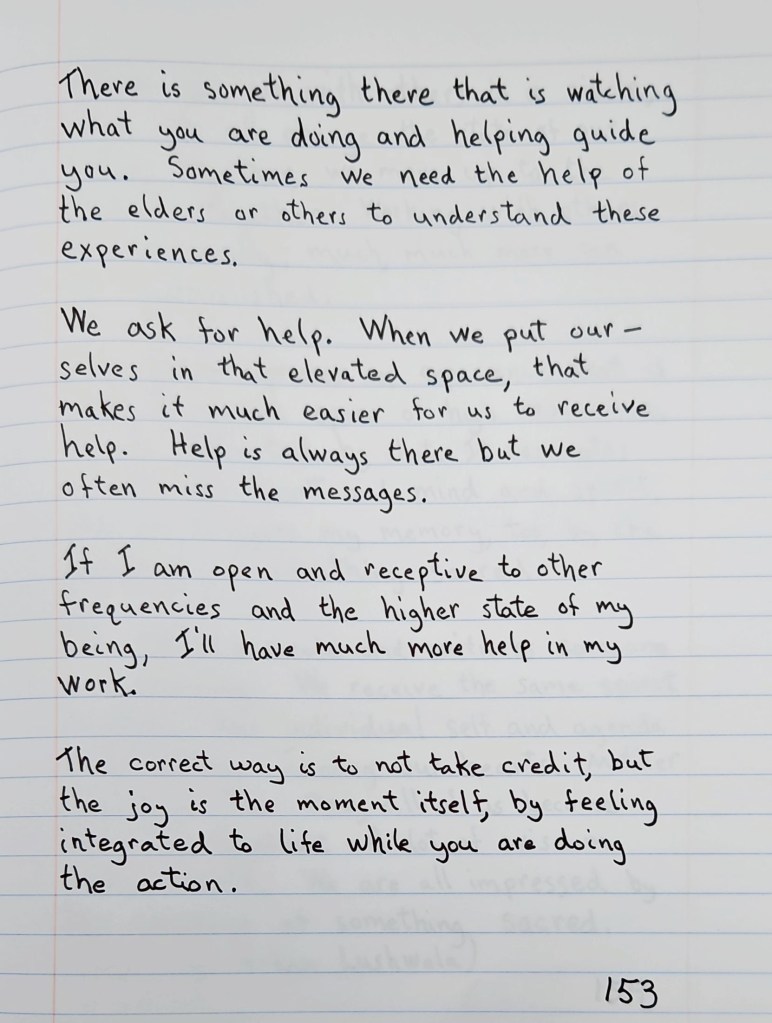 There is something there that is watching
what you are doing and helping guide
you. Sometimes we need the help of
the elders or others to understand these
experiences.
We ask for help. When we put our-
selves in that elevated space, that
makes it much easier for us to receive
help. Help is always there but we
often miss the messages.
If I am open and receptive to other
frequencies and the higher state of my
being, I'll have much more help in my
work.
The correct way is to not take credit, but
the joy is the moment itself, by feeling
integrated to life while you are doing
the action.
153